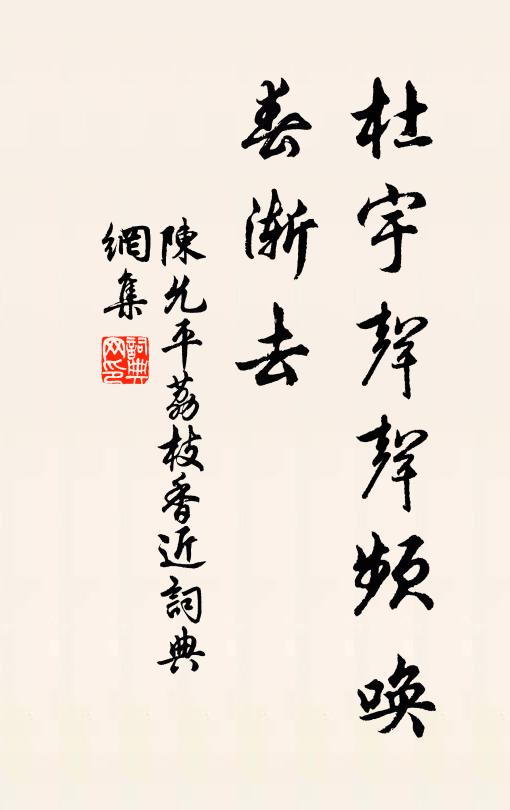 杜宇聲聲頻喚
春漸去
陳允平荔枝香近詞典
網集
詞典
网印